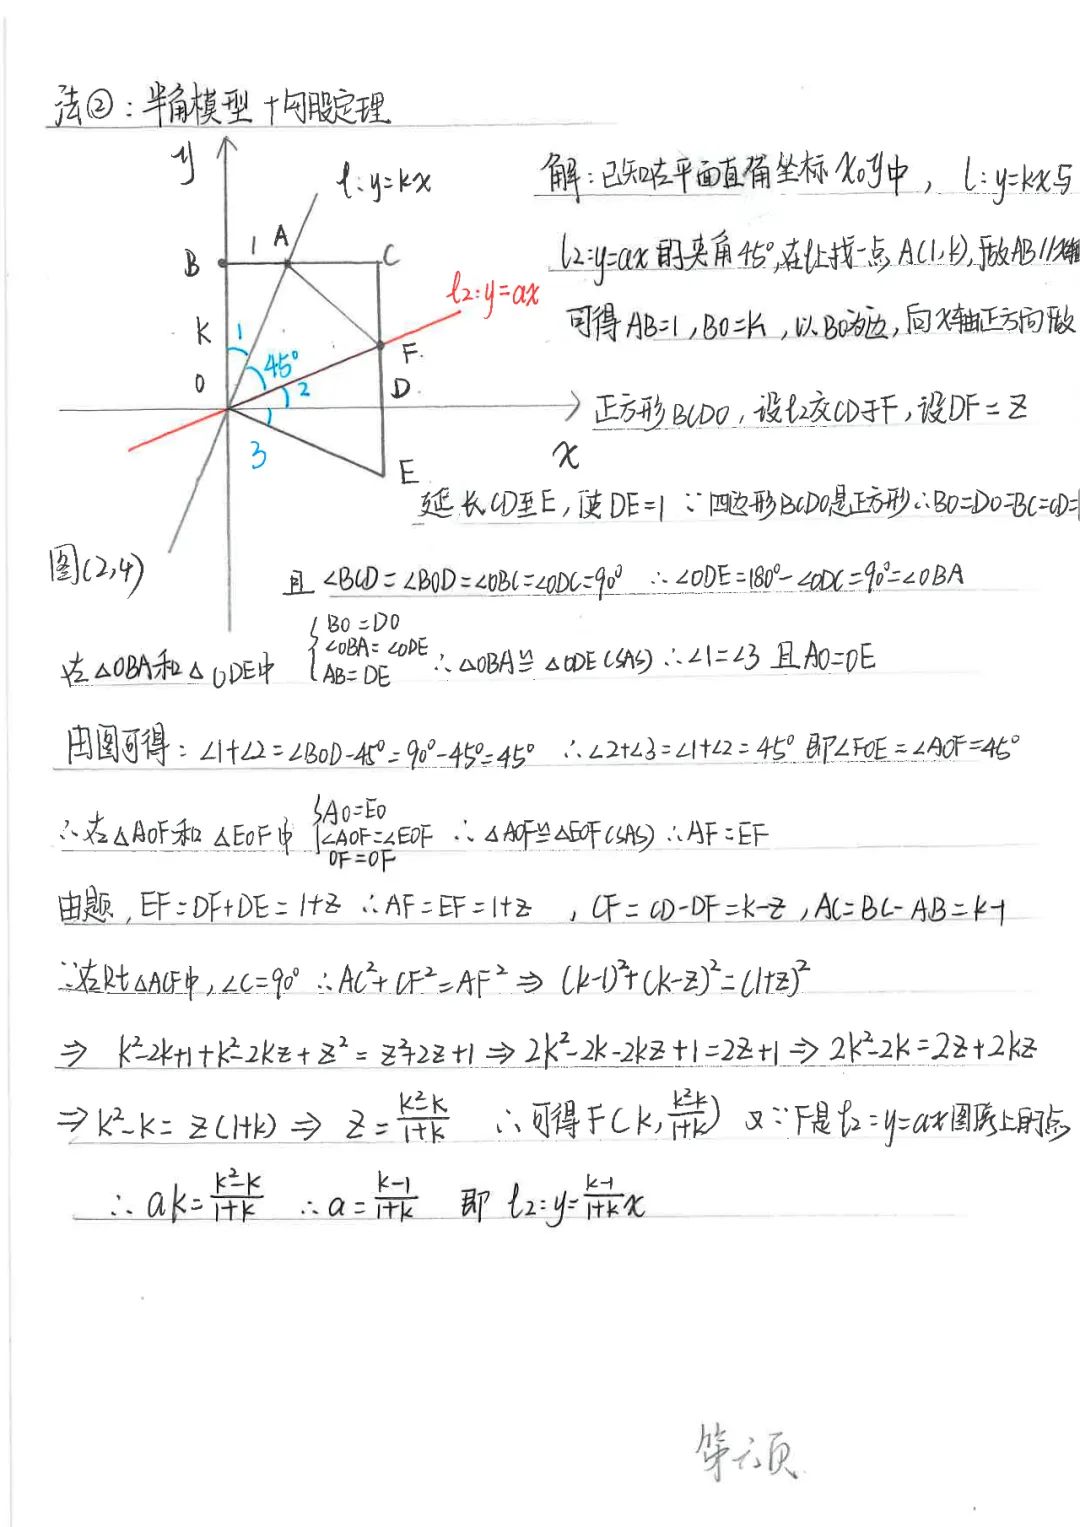 法②：半角模型+勾股定理
y
l：y=kx
B 1 A C
l₂：y=ax
K 1
45° F.
O 2 D
3 x
E
图(2,4)
解：已知在平面直角坐标xoy中，l：y=kx与
l₂：y=ax的夹角45°，在l上找一点A(1,k)，故AB//x轴
可得AB=1，BO=k，以BO为边，向x轴正方向做
正方形BCDO，设l₂交CD于F，设DF=z
延长CD至E，使DE=1 ∵四边形BCDO是正方形∴BO=DO=BC=CD=
且∠BCD=∠BOD=∠OBC=∠ODC=90° ∴∠ODE=180°-∠ODC=90°=∠OBA
在△OBA和△ODE中 {BO=DO ∠OBA=∠ODE AB=DE ∴△OBA≌△ODE(SAS) ∴∠1=∠3 且AO=OE
由图可得：∠1+∠2=∠BOD-45°=90°-45°=45° ∴∠2+∠3=∠1+∠2=45° 即∠FOE=∠AOF=45°
∴在△AOF和△EOF中 {AO=EO ∠AOF=∠EOF OF=OF ∴△AOF≌△EOF(SAS) ∴AF=EF
由题，EF=DF+DE=1+z ∴AF=EF=1+z ，CF=CD-DF=k-z，AC=BC-AB=k-1
∵在Rt△ACF中，∠C=90° ∴AC²+CF²=AF² ⇒ (k-1)²+(k-z)²=(1+z)²
⇒ k²-2k+1+k²-2kz+z²=z²+2z+1 ⇒ 2k²-2k-2kz+1=2z+1 ⇒ 2k²-2k=2z+2kz
⇒ k²-k=z(1+k) ⇒ z=\frac{k²-k}{1+k} ∴可得F(k,\frac{k²-k}{1+k}) 又∵F是l₂=y=ax图象上的点
∴ak=\frac{k²-k}{1+k} ∴a=\frac{k-1}{1+k} 即 l₂：y=\frac{k-1}{1+k}x
第六页